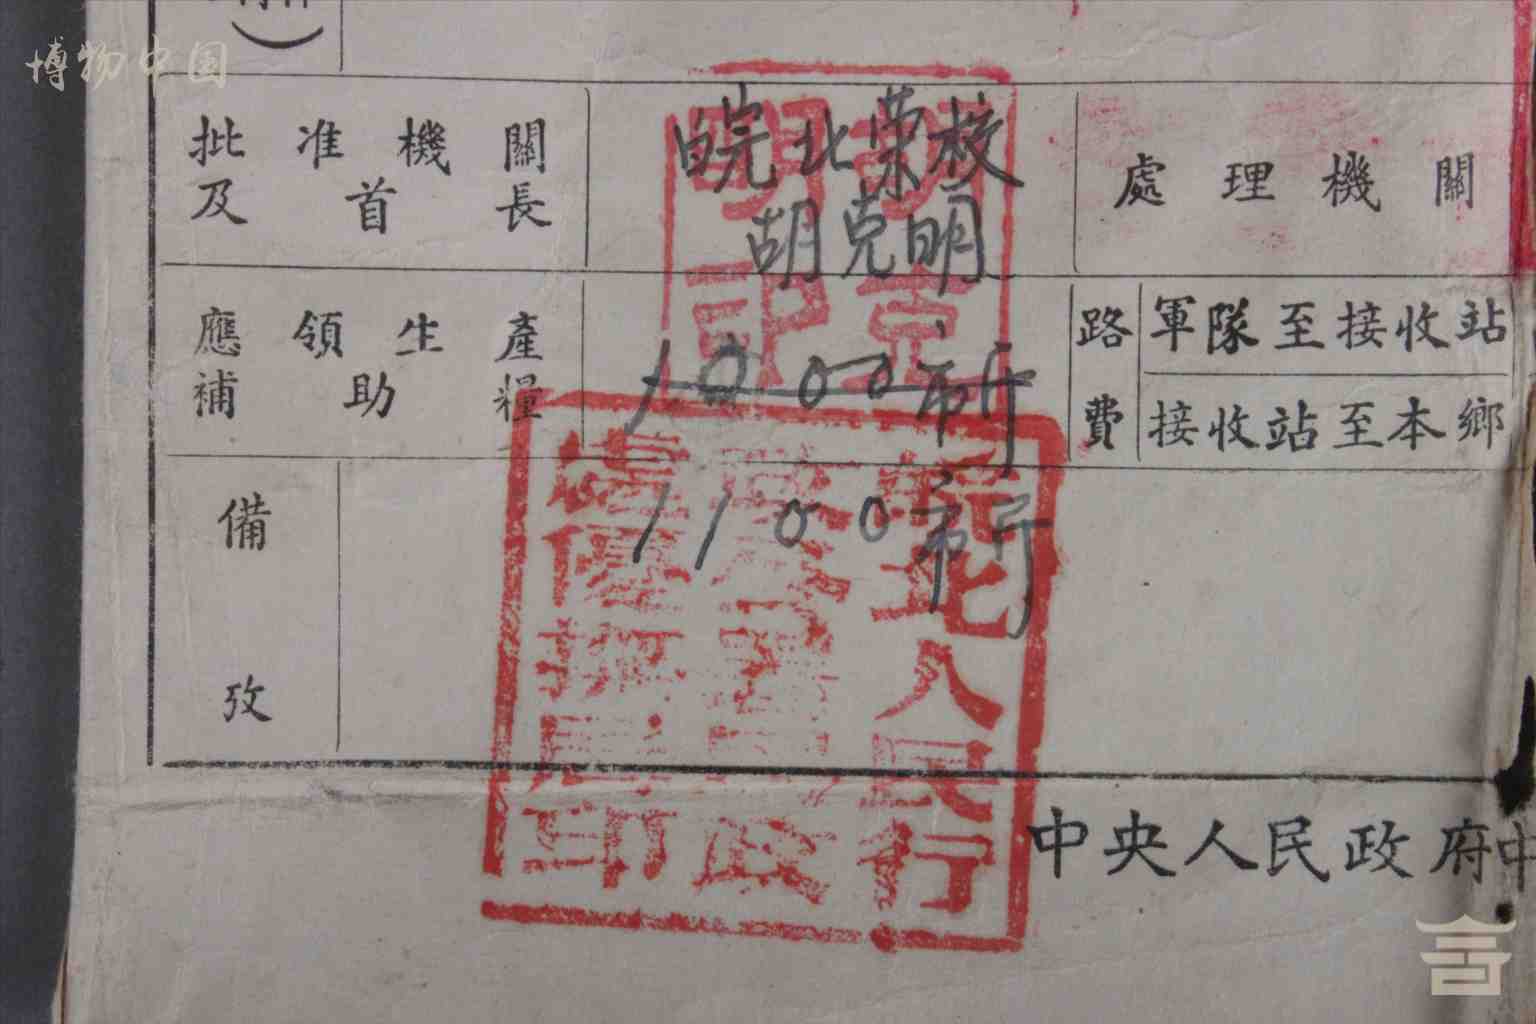 博物中国
批准機關
及首長
皖北荣校
胡克明
處理機關
應領生產
補助糧
1000市斤
路費
軍隊至接收站
接收站至本鄉
1100市斤
備攷
人民行
印
中央人民政府中